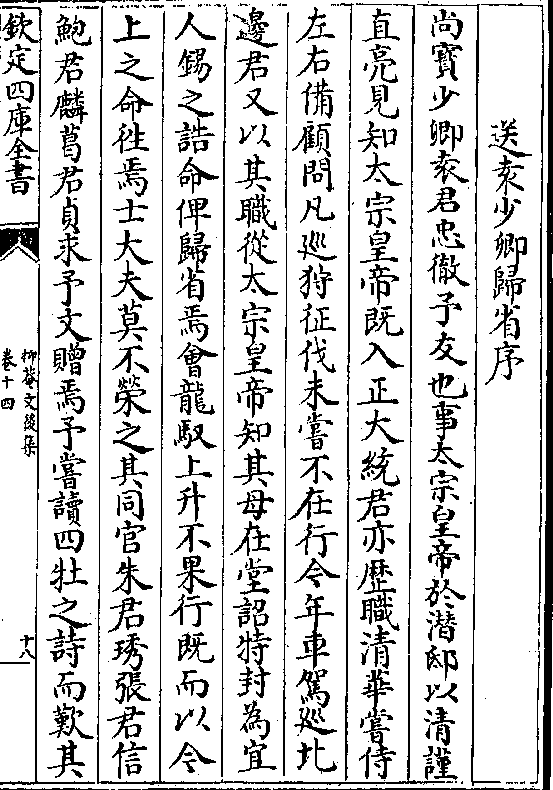 送袁少卿歸省序
尚寳少卿袁君忠徹予友也事太宗皇帝於潛邸以清謹
直亮見知太宗皇帝既入正大統君亦歴職清華嘗侍
左右備顧問凡廵狩征伐未嘗不在行今年車駕廵北
邊君又以其職從太宗皇帝知其母在堂詔特封為宜
人錫之誥命俾歸省焉會龍馭上升不果行既而以今
上之命徃焉士大夫莫不榮之其同官朱君琇張君信
鮑君麟葛君貞求予文贈焉予嘗讀四牡之詩而歎其
欽定四庫全書
抑菴文後集
卷十四
十八